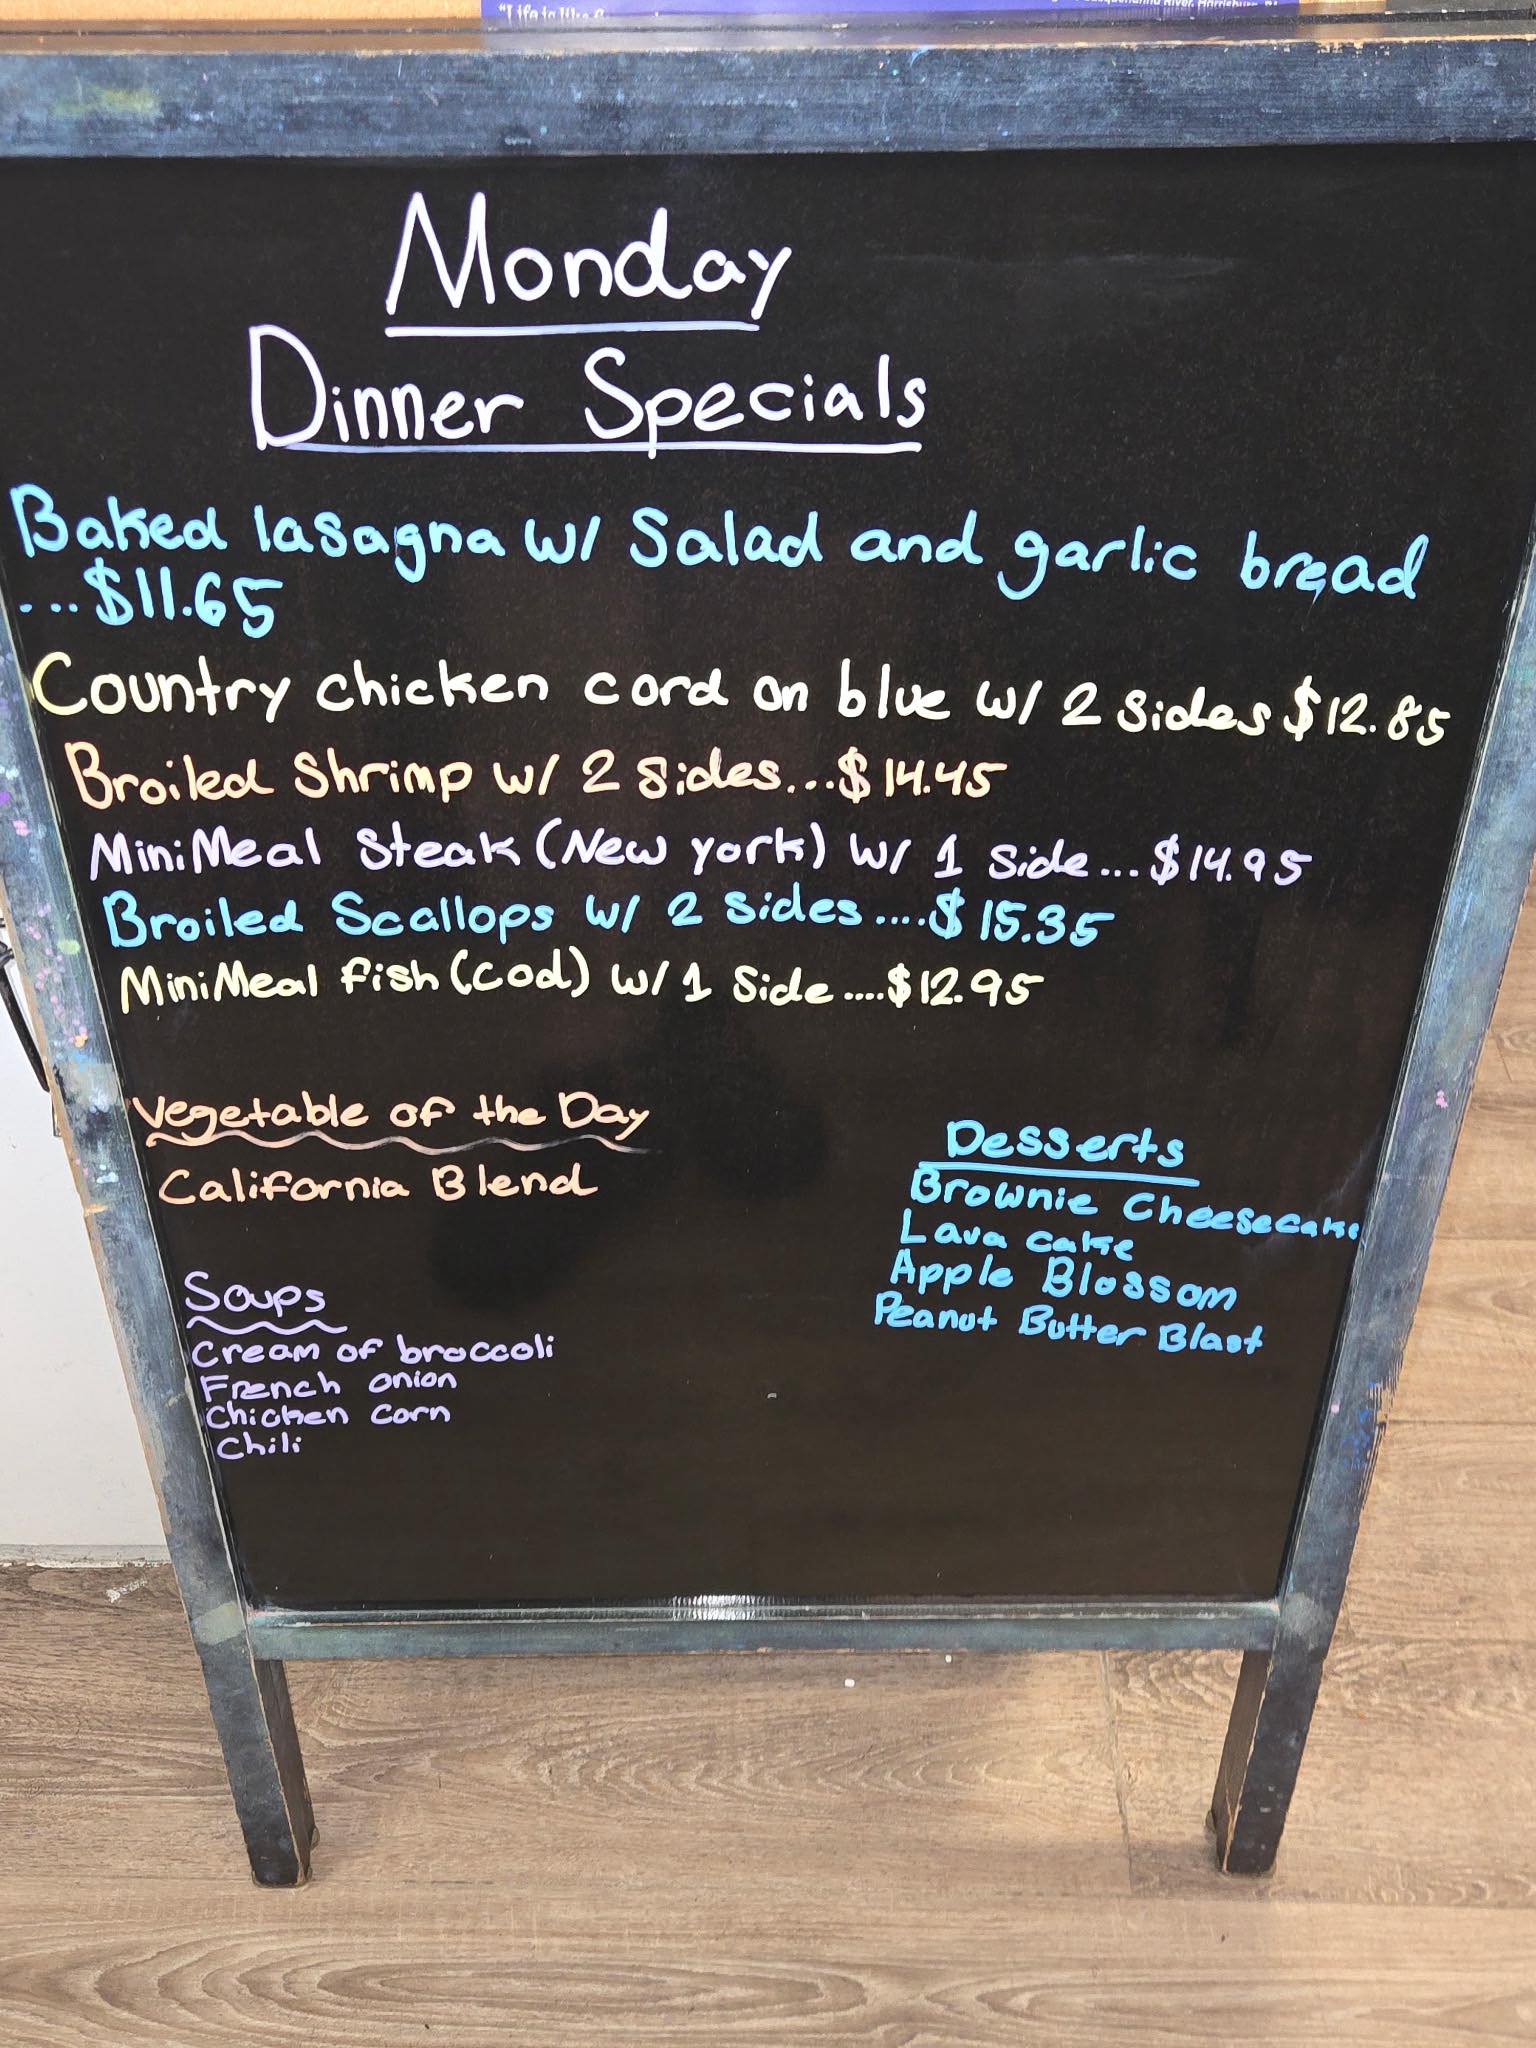 "Life is like a
Susquehanna River, Harrisburg, PA
Monday
Dinner Specials
Baked lasagna w/ Salad and garlic bread
...$11.65
Country chicken cord on blue w/ 2 sides $12.85
Broiled Shrimp w/ 2 sides...$14.45
MiniMeal Steak (New york) w/ 1 Side...$14.95
Broiled Scallops w/ 2 sides....$15.35
MiniMeal fish (cod) w/ 1 Side....$12.95
Vegetable of the Day
California Blend
Desserts
Brownie Cheesecake
Lava cake
Apple Blossom
Peanut Butter Blast
Soups
Cream of broccoli
French onion
Chicken corn
Chili